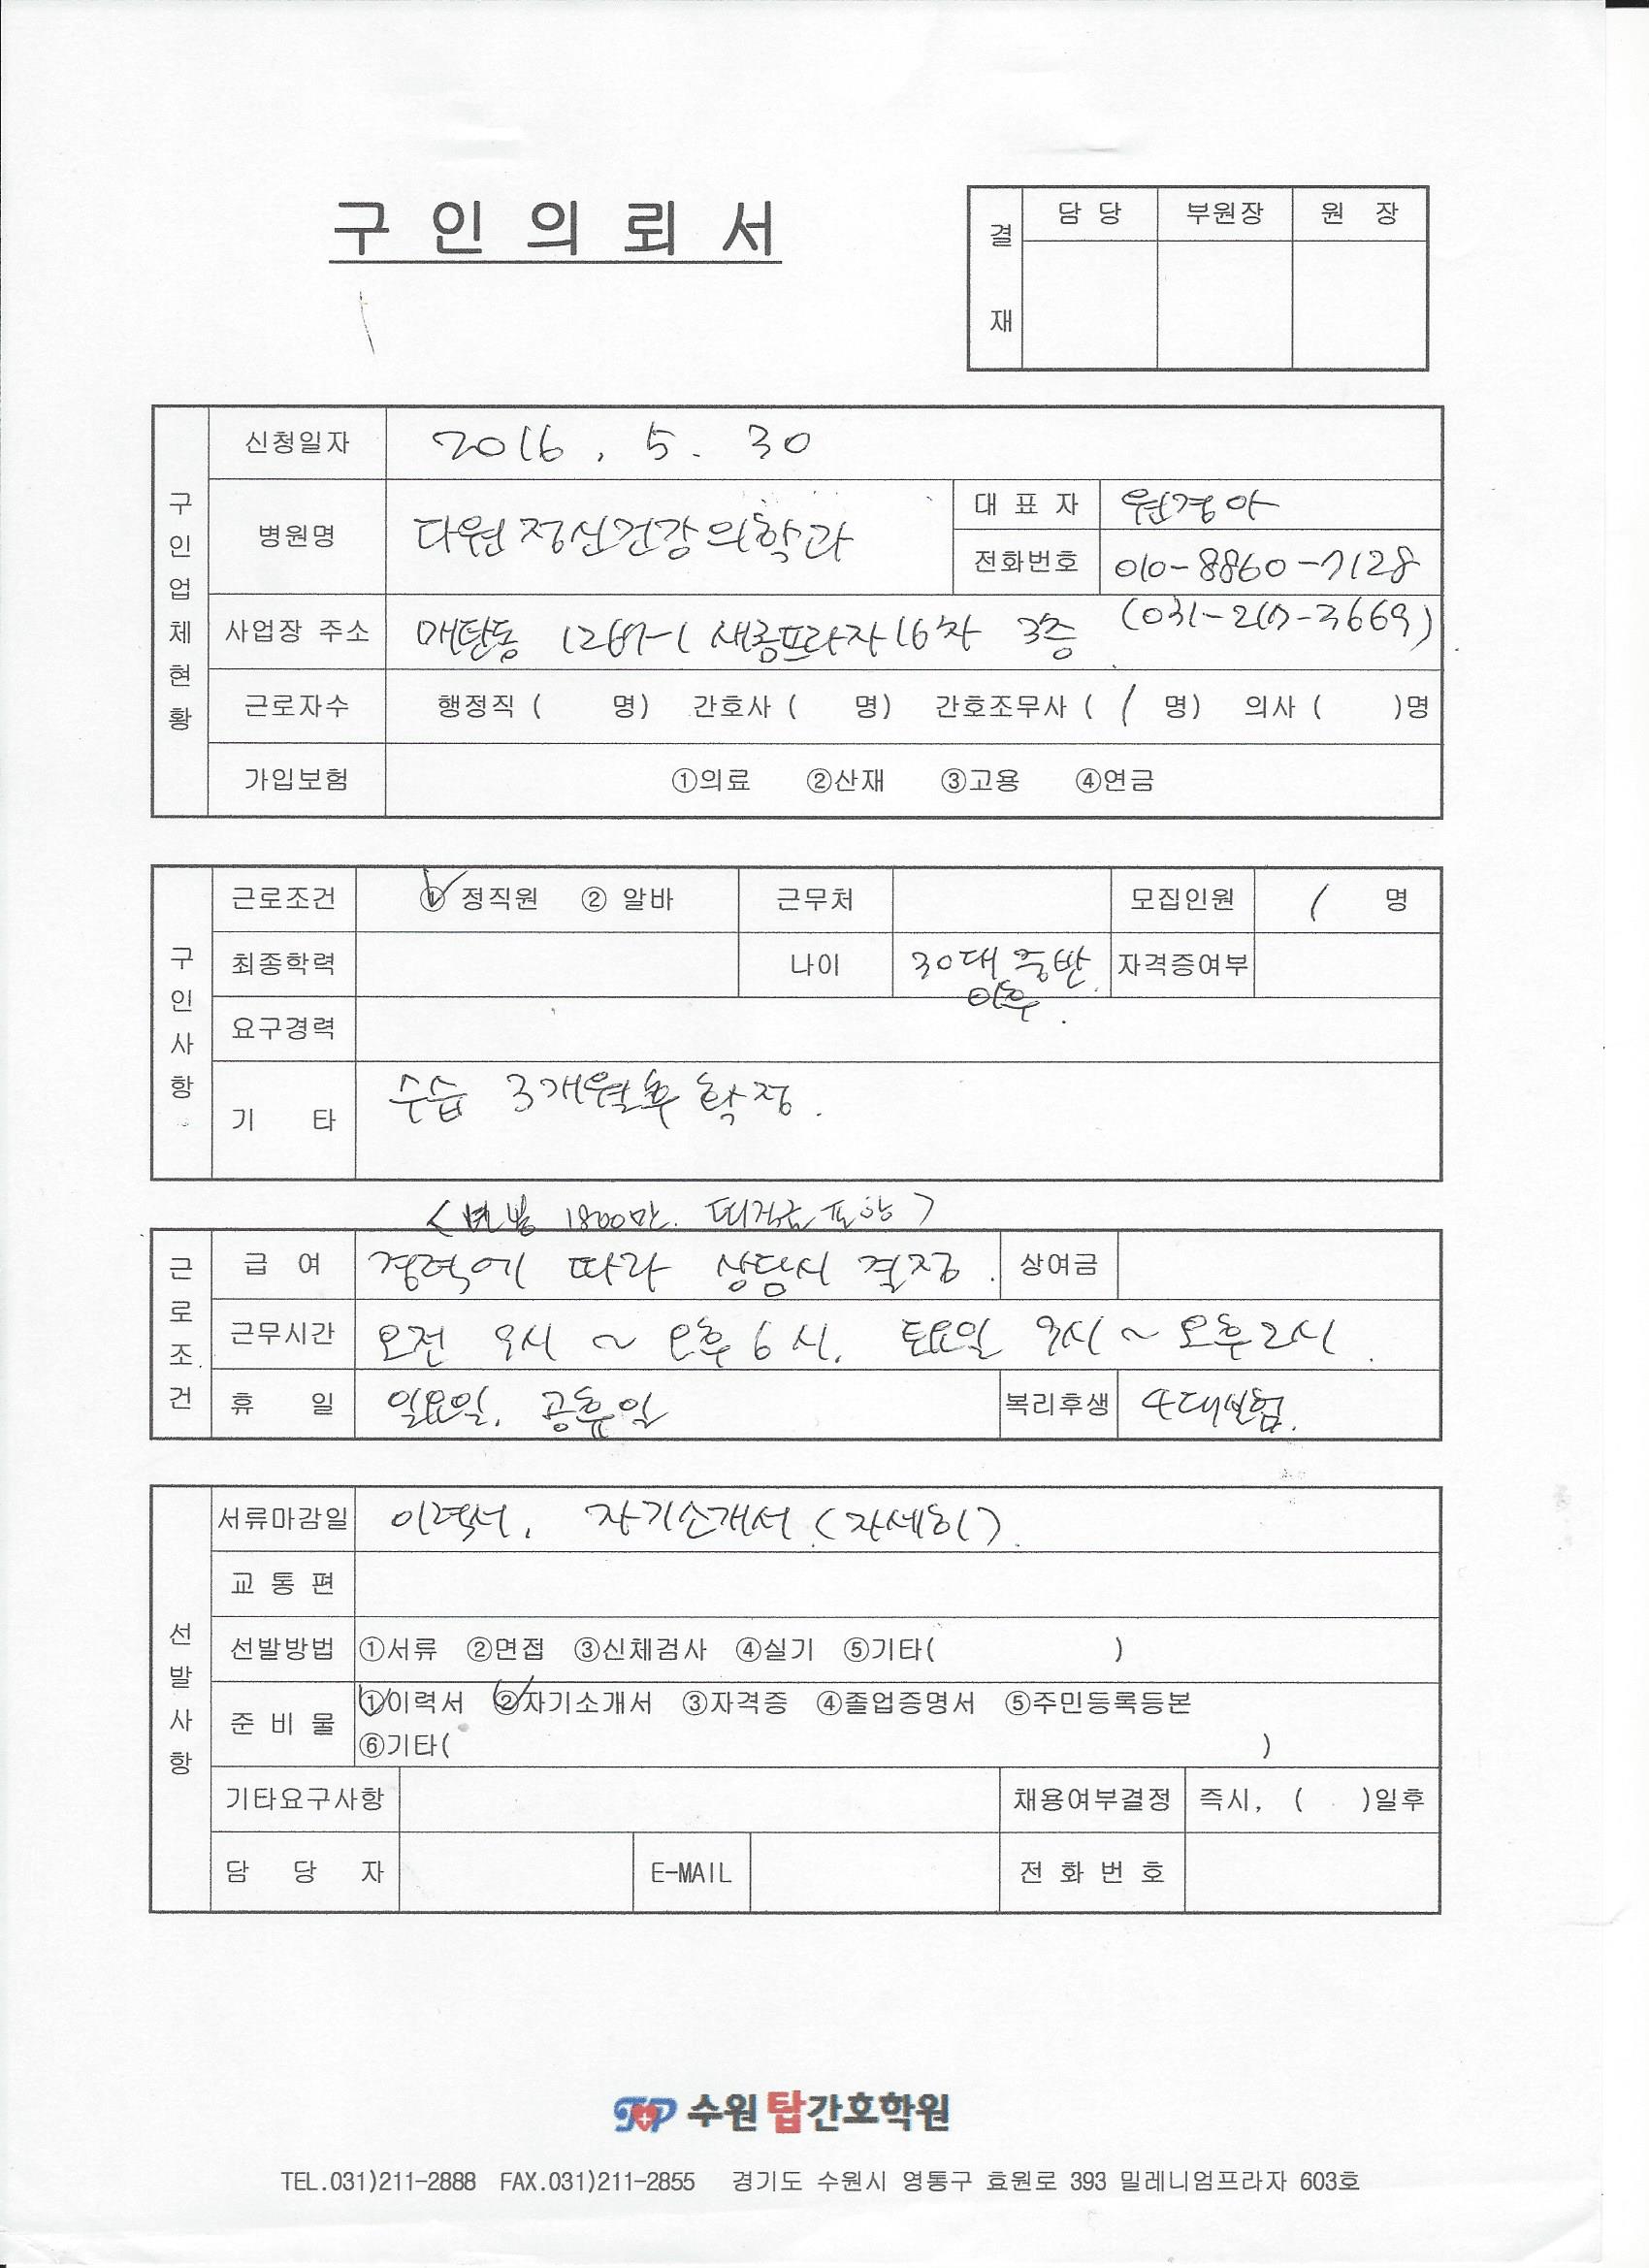 구 인 의 뢰 서
결 재 담 당 부원장 원 장
구인업체현황
신청일자 2016. 5. 30
병원명 다원정신건강의학과
대 표 자 원경아
전화번호 010-8860-7128
(031-217-3669)
사업장 주소 매탄동 1267-1 세종프라자16차 3층
근로자수 행정직 ( 명) 간호사 ( 명) 간호조무사 ( 1 명) 의사 ( )명
가입보험 ①의료 ②산재 ③고용 ④연금
구인사항
근로조건 ① 정직원 ② 알바 근무처 모집인원 1 명
최종학력 나이 30대 중반 이후. 자격증여부
요구경력
기 타 수습 3개월후 확정.
<연봉 1800만. 퇴직금포함>
근로조건
급 여 경력에 따라 상담시 결정. 상여금
근무시간 오전 9시 ~ 오후 6시. 토요일 9시 ~ 오후2시.
휴 일 일요일. 공휴일 복리후생 4대보험.
선발사항
서류마감일 이력서, 자기소개서 (자세히).
교 통 편
선발방법 ①서류 ②면접 ③신체검사 ④실기 ⑤기타( )
준 비 물 ①이력서 ②자기소개서 ③자격증 ④졸업증명서 ⑤주민등록등본
⑥기타( )
기타요구사항 채용여부결정 즉시, ( )일후
담 당 자 E-MAIL 전 화 번 호
TOP 수원 탑간호학원
TEL.031)211-2888 FAX.031)211-2855 경기도 수원시 영통구 효원로 393 밀레니엄프라자 603호